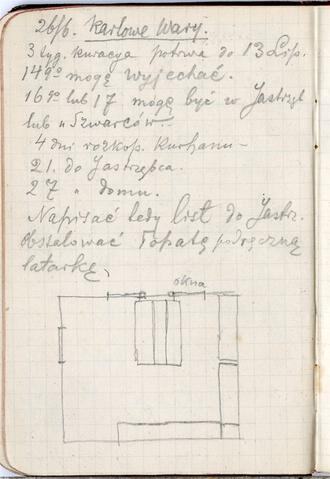 26/6. Karlowe Wary.
3 tyg. kuracya potrwa do 13 Lip.
14go mogę wyjechać.
16go lub 17 mogę być w Jastrzęb
lub u Szwarców
4 dni rozkop. Kurhanu –
21. do Jastrzębca.
27 „ domu.
Napisać tedy list do Jastrz.
obstalować łopatę podręczną
latarkę,
okna